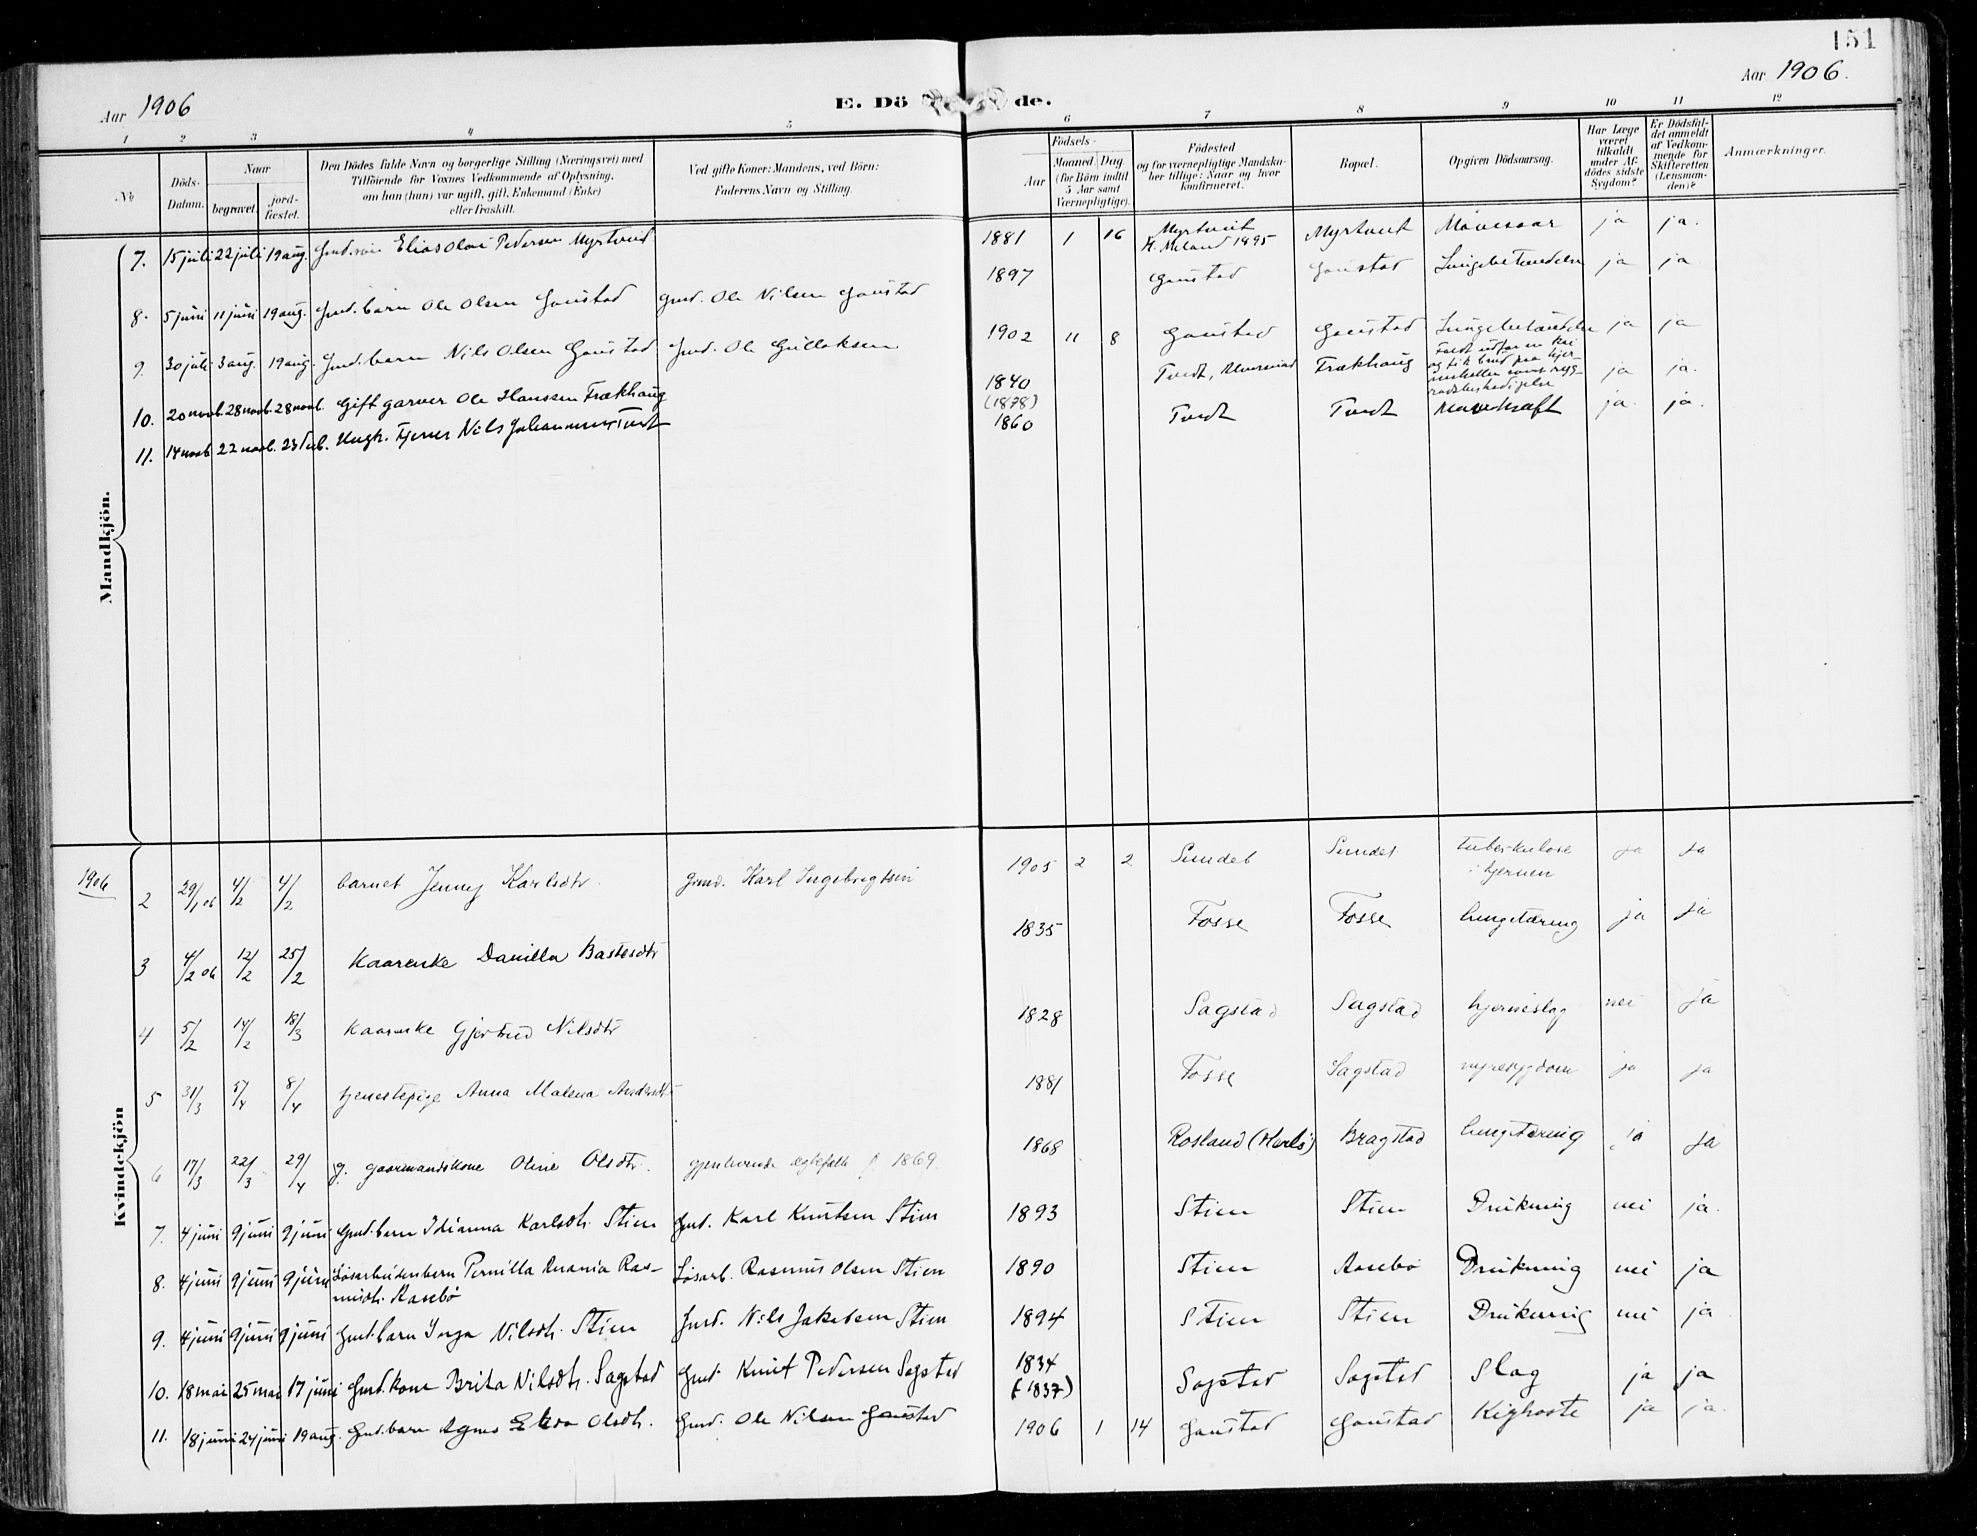 151
Aar 1906
E. Dö de.
Aar 1906.
1 2 3 4 5 6 7 8 9 10 11 12
No.
Döds-Datum.
Naar
begravet.
jord-fæstet.
Den Dödes fulde Navn og borgerlige Stilling (Næringsvei) med
Tilföiende for Voxnes Vedkommende af Oplysning,
om han (hun) var ugift, gift, Enkemand (Enke)
eller fraskilt.
Ved gifte Koner: Mandens, ved Börn:
Faderens Navn og Stilling.
Födsels-
Aar
Maaned. Dag
(for Börn indtil
5 Aar samt
Værnepligtige).
Födested
og for værnepligtige Mandska-
ber tillige: Naar og hvor
konfirmeret.
Bopæl.
Opgiven Dödsaarsag.
Har Læge
været
tilkaldt
under Af-
dödes sidste
Sygdom?
Er Dödsfal-
det anmeldt
af Vedkom-
mende for
Skifteretten
(Lensman-
den)?
Anmærkninger.
Mandkjön.
7. 15 juli 22 juli 19 aug. Elias Olai Pedersen Myrtveit 1881 1 16 Myrtveit Myrtveit Mavesaar ja ja.
Meland 1895
8. 5 juni 11 juni 19 aug. Gmd. barn Ole Olsen Gaustad Gmd. Ole Nilsen Gaustad 1897 Gaustad Gaustad Lungebetændelse ja ja
9. 30 juli 3 aug. 19 aug. Gmd. barn Nils Olsen Gaustad Gmd. Ole Gullaksen 1902 11 8 Gaustad Gaustad Lungebetændelse ja ja
10. 20 novb. 28 novb. 28 novb. Gift garver Ole Hanssen Frækhaug 1840 Tvedt, Alversund Frækhaug Faldt udfor en kai
og fik brud paa hjer-
neskallen samt ryg-
radsbeskadigelse ja ja.
(1878)
11. 14 novb. 22 novb. Ungk. Nils Johannessen Tvedt 1860 Tvedt Tvedt Mavekræft ja ja.
Kvindekjön
1906
2 29/1 06 4/2 4/2 barnet Jenny Karlsdtr. gmd. Karl Ingebrigtsen 1905 2 2 Sundet Sundet tuberkulose
i hjernen ja ja
3 4/2 06 12/2 25/2 Kaarenke Danilla Bastesdtr 1835 Fosse Fosse lungetæring ja ja
4 5/2 14/2 18/3 Kaarenke Gjertrud Nilsdtr 1828 Sagstad Sagstad hjerneslag nei ja
5 31/3 5/4 8/4 tjenestepige Anna Malena Andersdtr 1881 Fosse Sagstad nyresygdom ja ja
6 17/3 22/3 29/4 g. gaarmandskone Oline Olsdtr. gjenlevende ægtefælle f. 1869. 1868 Rosland (Herlö) Bragstad lungetæring ja ja
7. 4 juni 9 juni 9 juni Gmd. barn Karlsdtr. Stien Gmd. Karl Knutsen Stien 1893 Stien Stien Drukning nei ja.
8. 4 juni 9 juni 9 juni Løsarbeiderbarn Pernilla Anania Ras-
musdtr. Aasebø Løsarb. Rasmus Olsen Stien 1890 Stien Aasebø Drukning nei ja
9. 4 juni 9 juni 9 juni Gmd. barn Inga Nilsdtr. Stien Gmd. Nils Jakobsen Stien 1894 Stien Stien Drukning nei ja
10. 18 mai 25 mai 17 juni Gmd. kone Brita Nilsdtr. Sagstad Gmd. Knut Pedersen Sagstad 1834 Sagstad Sagstad Slag ja ja
(1837)
11. 18 juni 24 juni 19 aug. Gmd. barn Agnes Olsdtr. Gmd. Ole Nilsen Gaustad 1906 1 14 Gaustad Gaustad Kighoste ja ja.